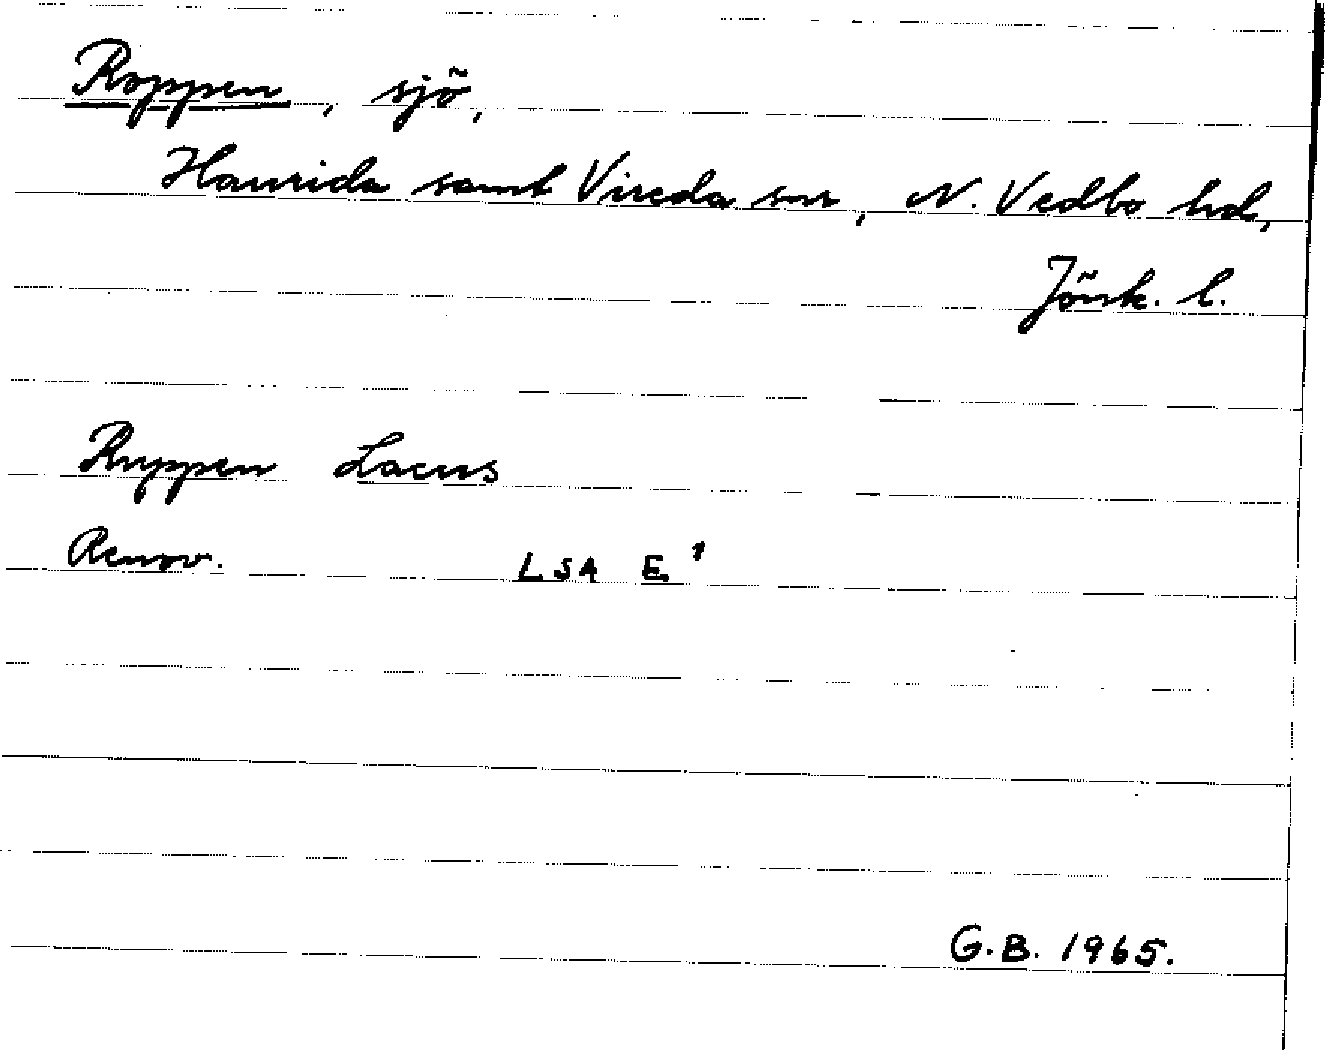 Roppen, sjö,
Haurida samt Vireda snr, N. Vedbo hd,
Jönk. l.
Ruppen Lacus
Renov. LSA E1
G.B. 1965.